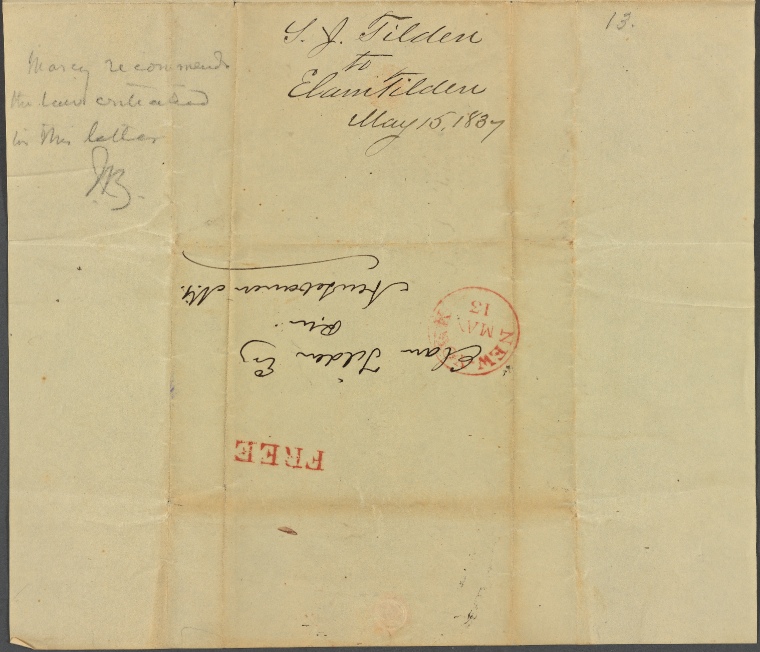 13.
S. J. Tilden
to
Elam Tilden
May 15, 1837
Marcy recommends
the law
in this letter
JB.
Elam Tilden Esq
P.M.
New Lebanon N.Y.
NEW YORK
MAY
13
FREE